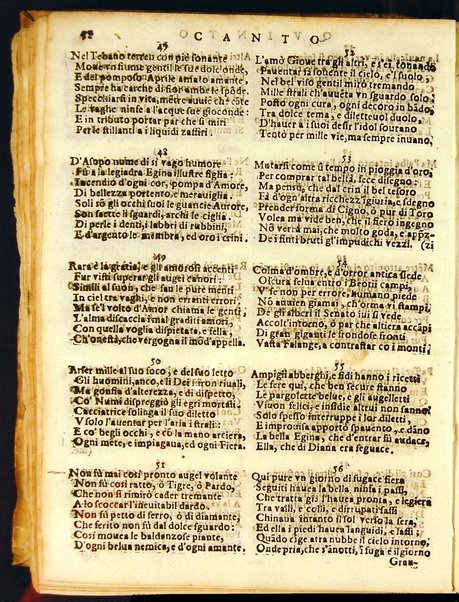 52
CANTO
47
Nel Tebano terren con piè sonante
Moue vn fiume gentil le sue dolc'onde,
E del pomposo Aprile amato amante,
Sempre hà carche di fior ambe le spõde.
Specchiarsi in vista, mètre auuiẽ che cãte
Le vaghe ninfe al'acque sue gioconde:
E in tributo portar par che si miri
Per le stillanti a i liquidi zaffiri.
48
D'Asopo nume di sì vago humore
Fù a la legiadra Egina illustre figlia:
Incendio d'ogni cor, pompa d'Amore,
Di bellezza portento, e merauiglia.
Soli sõ gli occhi suoi le guancie Aurore,
Son saette li sguardi, archi le ciglia.
Di perle i denti, i labbri di rubbini,
E d'argento le membra, ed oro i crini.
49
Rara è la gratia, e gli amorosi accenti
Fur visti superar gli augei canori:
Simili al suon, che fan le pure menti
In ciel tra vaghi, e non erranti errori:
Ma se'l volto d'Amor chiama le genti,
L'alma discaccia i mal graditi amori,
Con quella voglia dispietata, e fella,
Ch'onestà, che vergogna il mõd'appella.
50
Arser mille al suo foco, e del suo letto
Gli huomini, anco, e li Dei furon riuali,
Ma gonfia d'alterezza, e di dispetto,
Co' Numi dispreggò gli egri mortali:
Cacciatrice solinga il suo diletto
Vsolo l'auentar per l'aria i strali:
E co' begli occhi, e cõ la mano arciera,
Ogni mète, e impiagaua, ed ogni Fiera.
51
Non fù mai così pronto augel volante
Non fù così ratto, ò Tigre, ò Pardo,
Che non si rimirò cader tremante
A lo scoccar l'inseuitabil dardo.
Non fù petto di ferro, ò di diamante,
Che ferito non fù dal dolce sguardo:
Così mouea le baldanzose piante,
D'ogni belua nemica, e d'ogni amante.
52
L'amò Gioue tra gli altri, e s'ei tonando
Pauentar fà souente il cielo, e'l suolo;
Nel bel viso gentil mirò tremando
Mille strali ch'auuẽta vn sguardo solo;
Posto ogni cura, ogni decoro in bãdo,
Tra dolce tema, e diletteuol duolo.
D'hauer à i suoi desir l'idol sourano
Tentò per mille vie, ma sempre inuano.
53
Mutarsi come si tempo in pioggia d'oro,
Per comprar tal beltà, fece disegno:
Ma pensò, che dal crin il bel tesoro
Fà d'ogn'altra ricchezz'ĩgiuria, e sdegno
Prender sorena di Cigno, ò pur di Toro
Volea ma vide ben, che il fiero ingegno
Nõ verrà mai, che molto goda, e appz-
De i finti bruti gl'impudichi vezzi. (zi
54
Colma d'ombre, e d'orror antica siede
Oscura selua entro i Beotij campi,
V'se non per error, humano piede
Nõ auuiẽn giamai, ch'orma vi stampi,
De gli alberi il Senato iui si vede
Accolt'intorno, ò par che altiera accãpi
Di gran giganti le frondose fronti
Vasta Falange, a contrastar co i monti,
55
Ampi gli abberghi, e fidi hanno i ricetti
Le fere qui, che ben secure stanno
Le pargolette belue, e gli augelletti
Viuon felici, e insidie altrui non sanno:
Solo spesso interruppe i lor diletti,
E improuiso apportò spauento, e dãno
La bella Egina, che d'entrar fù audace,
Ella, che di Diana era seguace.
56
Qui pure vn giorno di fugace fiera
Seguiti hauea la bella ninfa i passi,
Che tratta gli l'hauea pronta, e legiera
Tra valli, e colli, e dirrupati sassi
Chinaua intanto il sol verso la sera,
Ed ella i piedi hauea languidi, e lassi:
Quãdo cige atra nubbe il cielo intorno,
Onde pria, che s'ãnotti, ĩ fuga è il giorno
Grau-